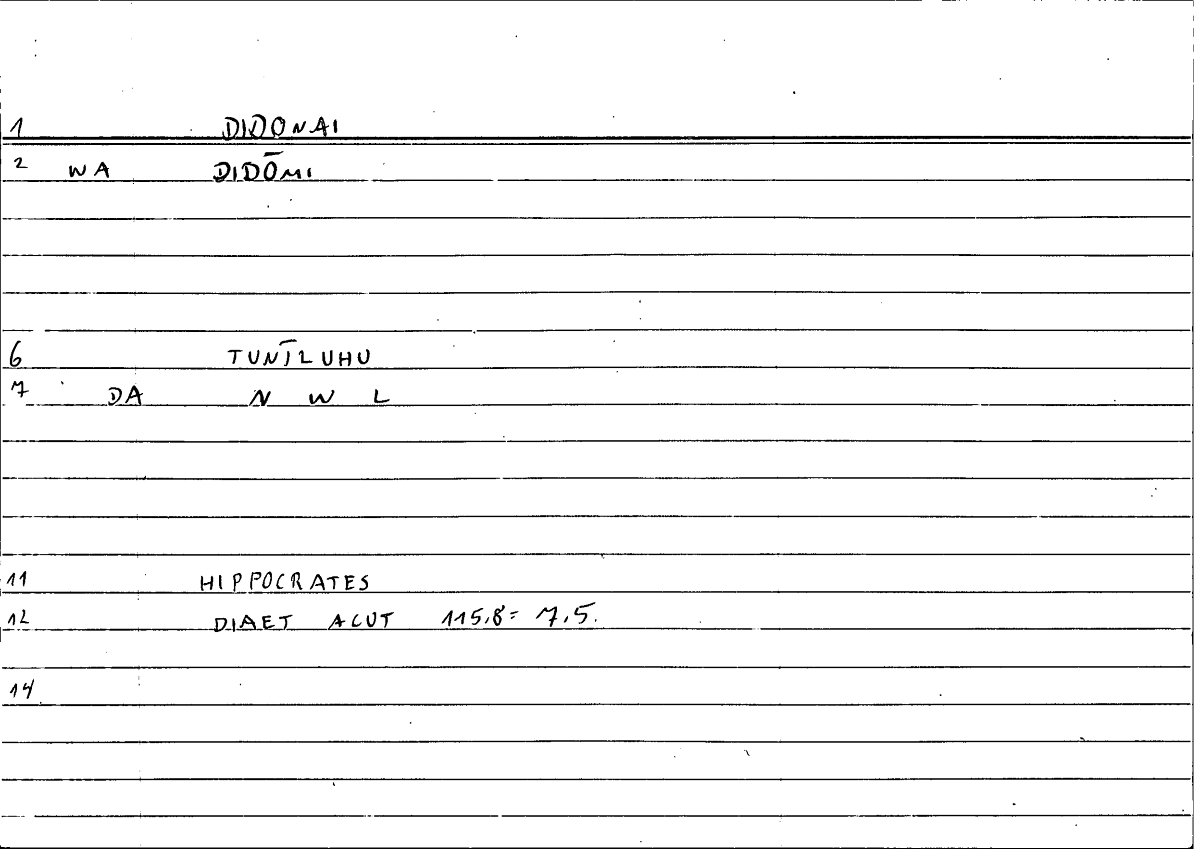 1 DIDONAI
2 WA DIDŌMI
6
7 DA N W L
11 HIPPOCRATES
12 DIAET ACUT 115,8= 7,5.
14